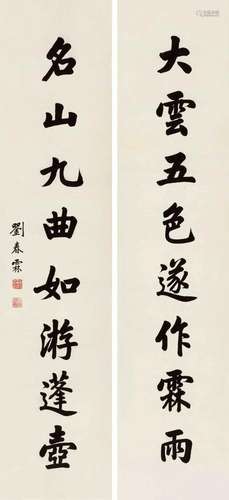 大雲五色遂作霖雨
名山九曲如游蓬壺
劉春霖